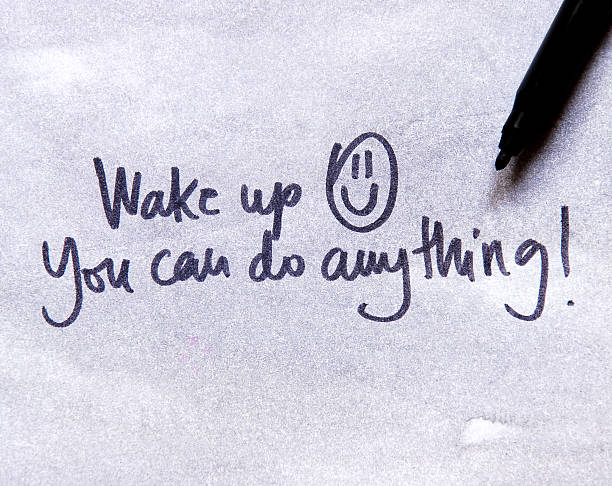 Wake up
You can do anything!